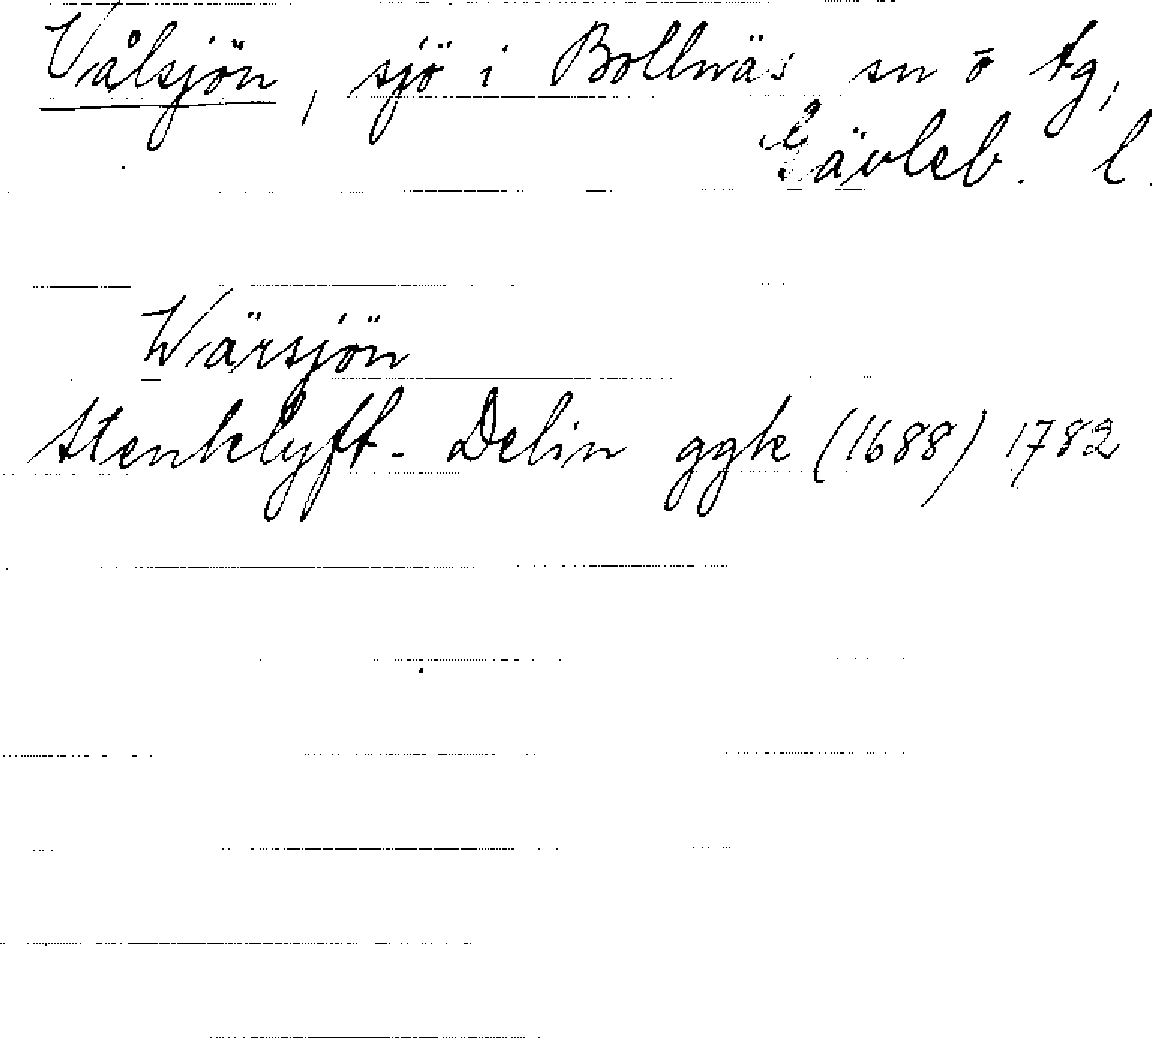 Vålsjön, sjö i Bollnäs sn o tg,
Gävleb. l.
Wärsjön
Stenklyft - Delin ggk (1688) 1782